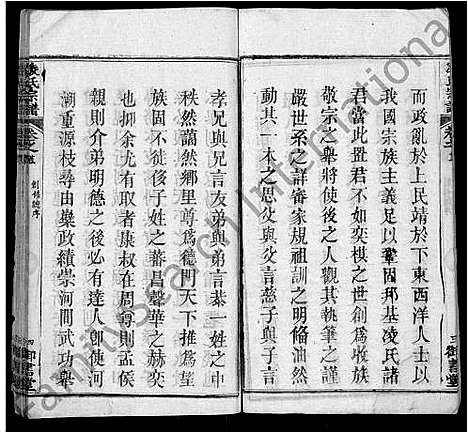 而政亂於上民靖於下東西洋人士以
我國宗族主義足以鞏固邦基凌氏諸
君當此丑君不如奕棋之世創為收族
敬宗之舉將使後之人觀其執筆之
嚴世系之詳審家規祖訓之明備油然
動其一本之思父與父言慈子與子言
孝兄與兄言友弟與弟言恭一姓之中
秩然藹然鄉里尊為德門天下推為望
族固不徒後子姓之蕃昌聲華之赫奕
為尤有取者康叔在周尊則孟侯
親則介弟明德之後必有達人即使河
潮重源枝尋由櫱政績崇河間武功舉
凌氏宗譜
創修譜序
FamilySearch International